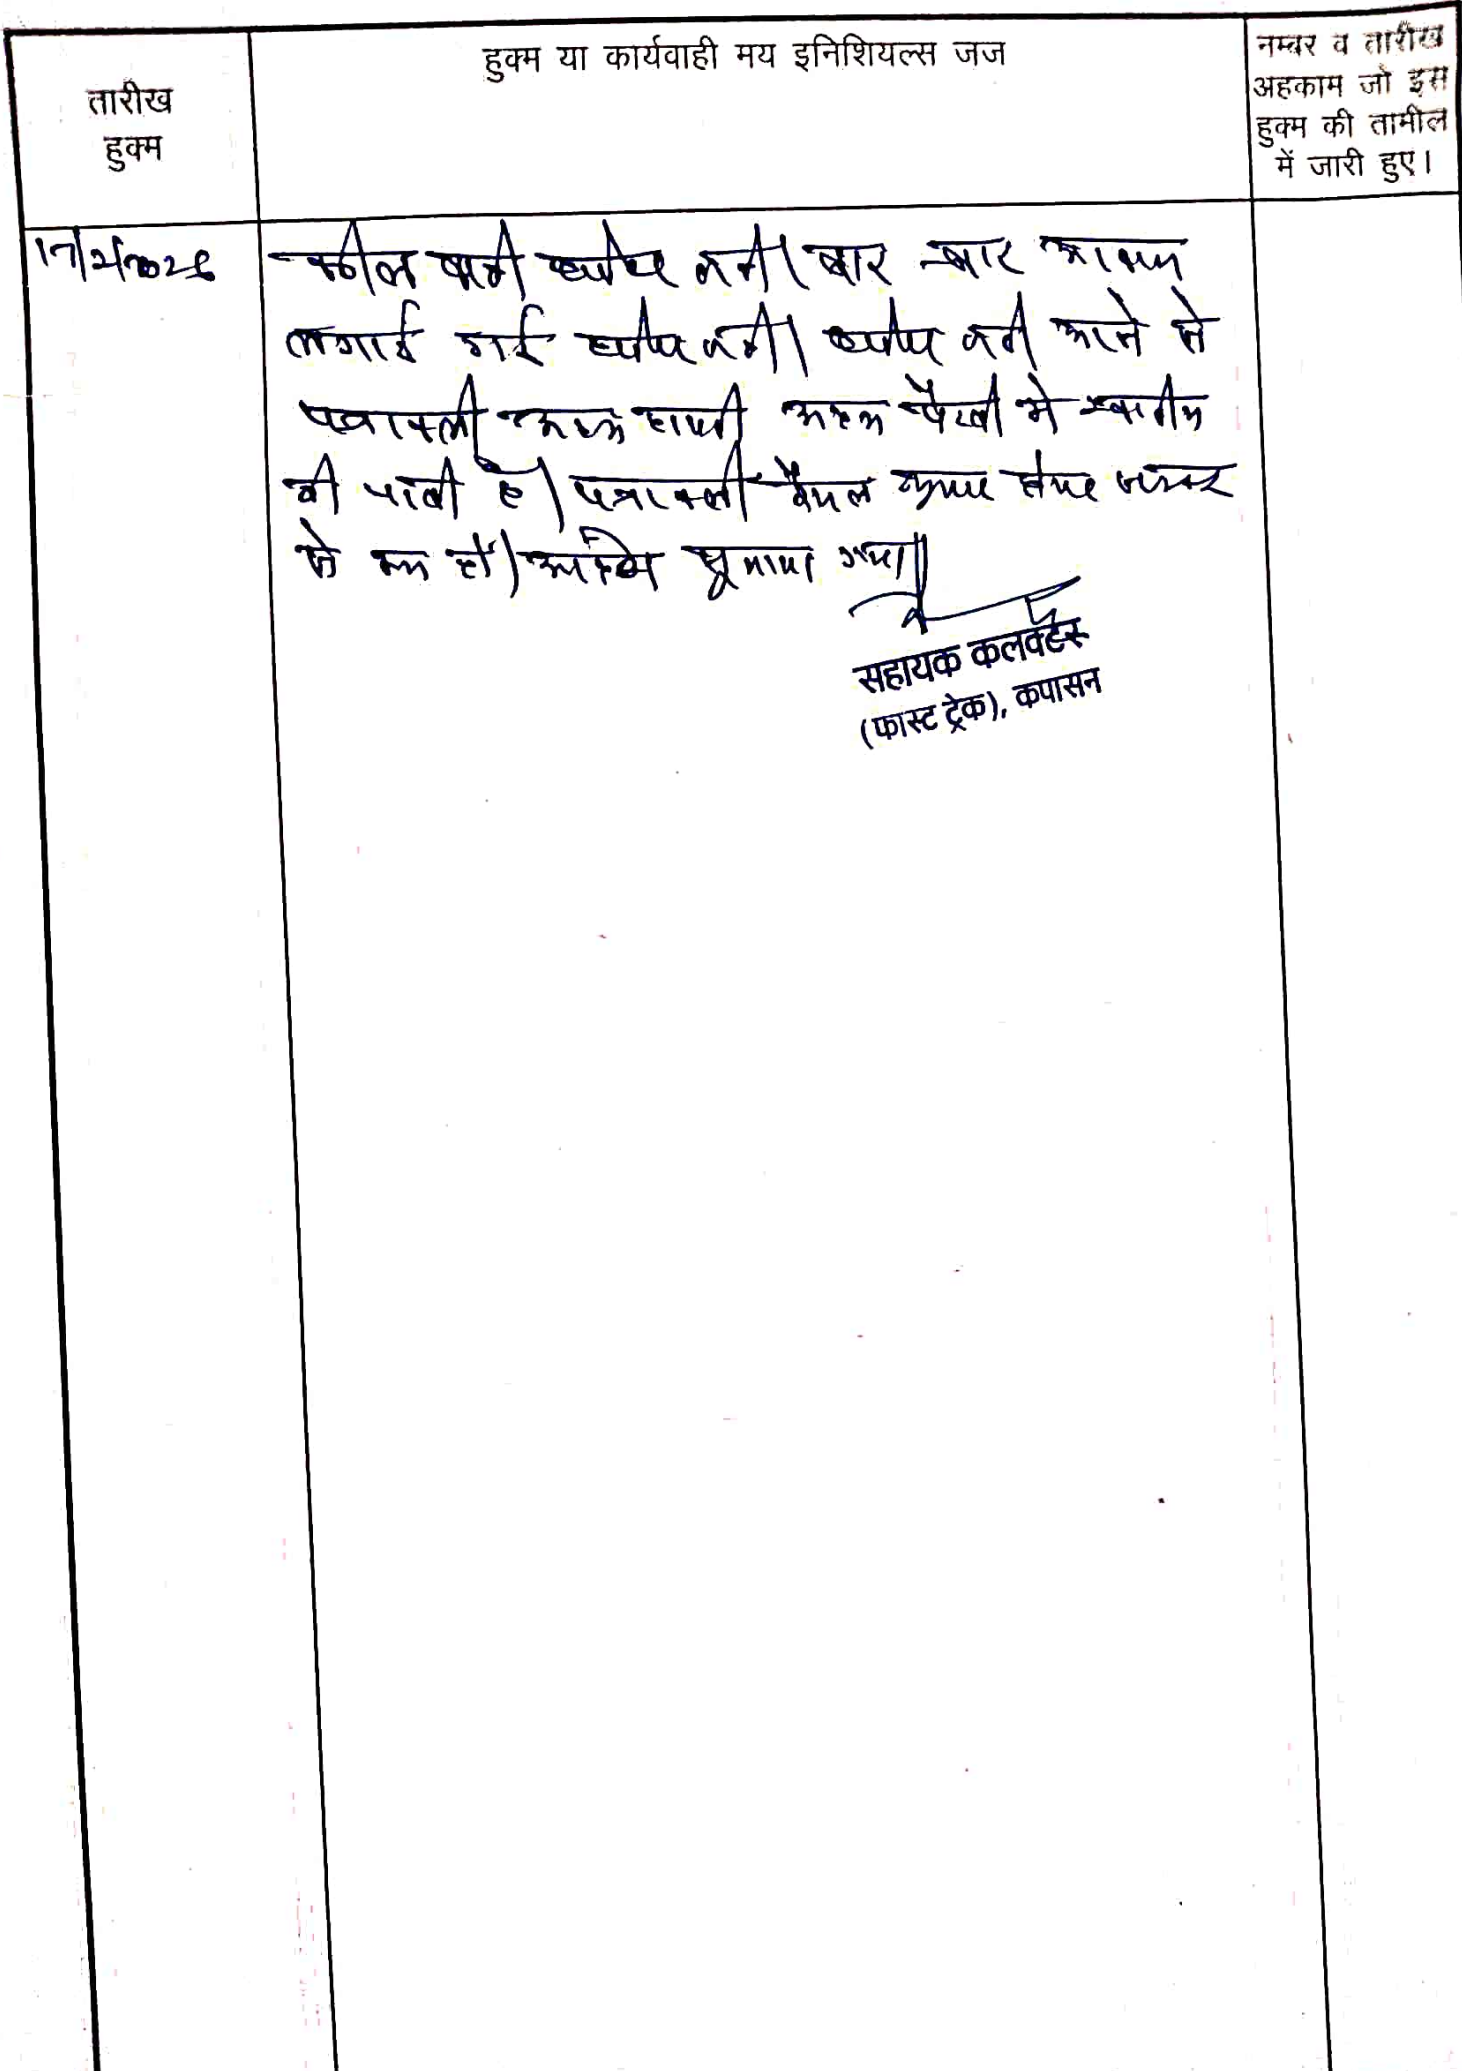 तारीख
हुक्म
हुक्म या कार्यवाही मय इनिशियल्स जज
नम्बर व तारीख
अहकाम जो इस
हुक्म की तामील
में जारी हुए।
17/2/2026
वकील वादी उपस्थित नहीं। बार बार आवाज
लगाई गई उपस्थित नहीं। उपस्थित नहीं आने से
पत्रावली अदम हाजरी अदम पैरवी में खारीज
की जाती है। पत्रावली फैसल शुमार होकर नम्बर
से कम हो। आदेश सुनाया गया॥
सहायक कलक्टर
(फास्ट ट्रेक), कपासन